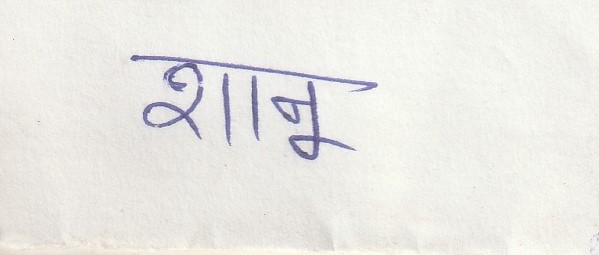 शानू